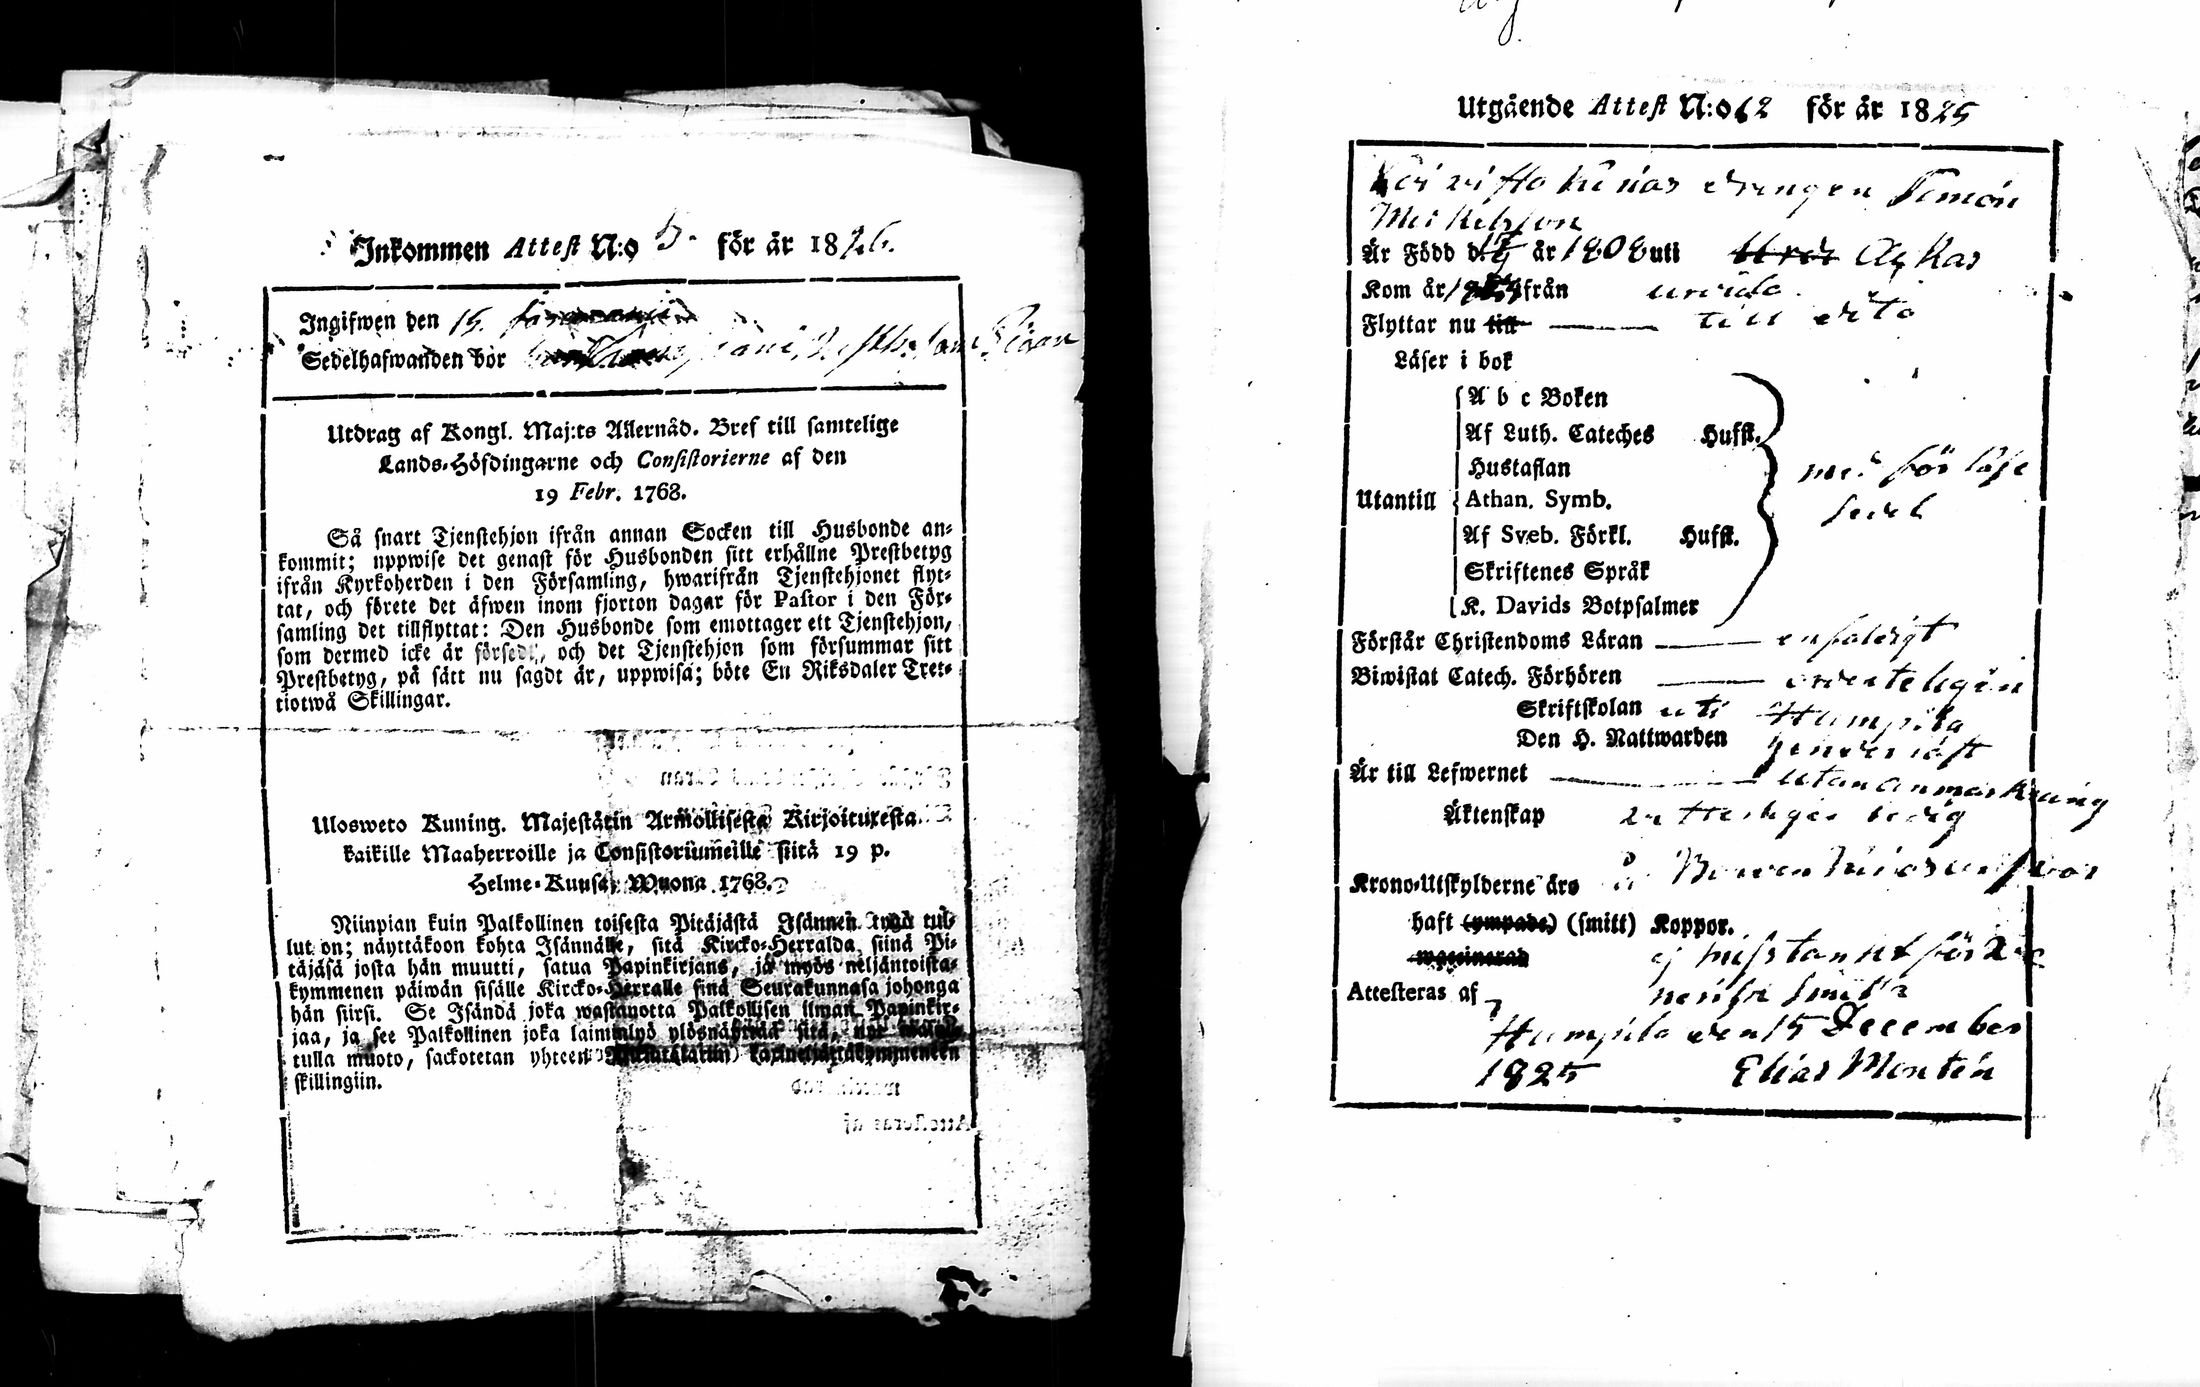 Inkommen Attest N:o 5. för år 1826.
Ingifwen den 15.
Sedelhafwanden bor
Utdrag af Kongl. Maj:ts Allernåd. Bref till samtelige
Lands-Höfdingarne och Consistorierne af den
19 Febr. 1768.
Så snart Tjenstehjon ifrån annan Socken till Husbonde an-
kommit; uppwise det genast för Husbonden sitt erhållne Prestbetyg
ifrån Kyrkoherden i den Församling, hwarifrån Tjenstehjonet flyt-
tat, och förete det äfwen inom fjorton dagar för Pastor i den För-
samling det tillflyttat: Den Husbonde som emottager ett Tjenstehjon,
som dermed icke är försedt, och det Tjenstehjon som försummar sitt
Prestbetyg, på sätt nu sagdt är, uppwisa; böte En Riksdaler Tret-
tiotwå Skillingar.
Ulosweto Kuning. Majestätin Armollisesta Kirjoituxesta
kaikille Maaherroille ja Consistoriumeille siitä 19 p.
Helme-Kuusa, Wuona 1768.
Niinpian kuin Palkollinen toisesta Pitäjästä Isännen tygö tul-
lut on; näyttäkoon kohta Isännälle, sitä Kircko-Herralda siinä Pi-
täjäsä josta hän muutti, satua Papinkirjans, ja myös neljäntoista-
kymmenen päiwän sisälle Kircko-Herralle sinä Seurakunnasa johonga
hän siirsi. Se Isändä joka wastanotta Palkollisen ilman Papinkir-
jaa, ja see Palkollinen joka laiminlyö ylösnäyttää sitä,
tulla muoto, sackotetan yhteen
skillingiin.
Utgående Attest N:o 62 för år 1825
drengen Simon
Michelsson
Är Född d. år 1808 uti
Kom år från Urdiala
Flyttar nu till till
Läser i bok
A b c Boken
Af Luth. Cateches Hufst.
Hustaflan
Utantill Athan. Symb.
Af Sveb. Förkl. Hufst.
Skriftenes Språk
K. Davids Botpsalmer
med förläse
sedel
Förstår Christendoms Läran enfaldigt
Biwistat Catech. Förhören ordenteligen
Skriftskolan uti Humpila
Den H. Nattwarden
Är till Lefwernet utan anmärkning
Äktenskap ledig
Krono-Utskylderne års
haft (ympade) (smitt) Koppor.
waccinerad ej misstänkt för
Attesteras af
Humpila den 15 December
1825 Elias Montén